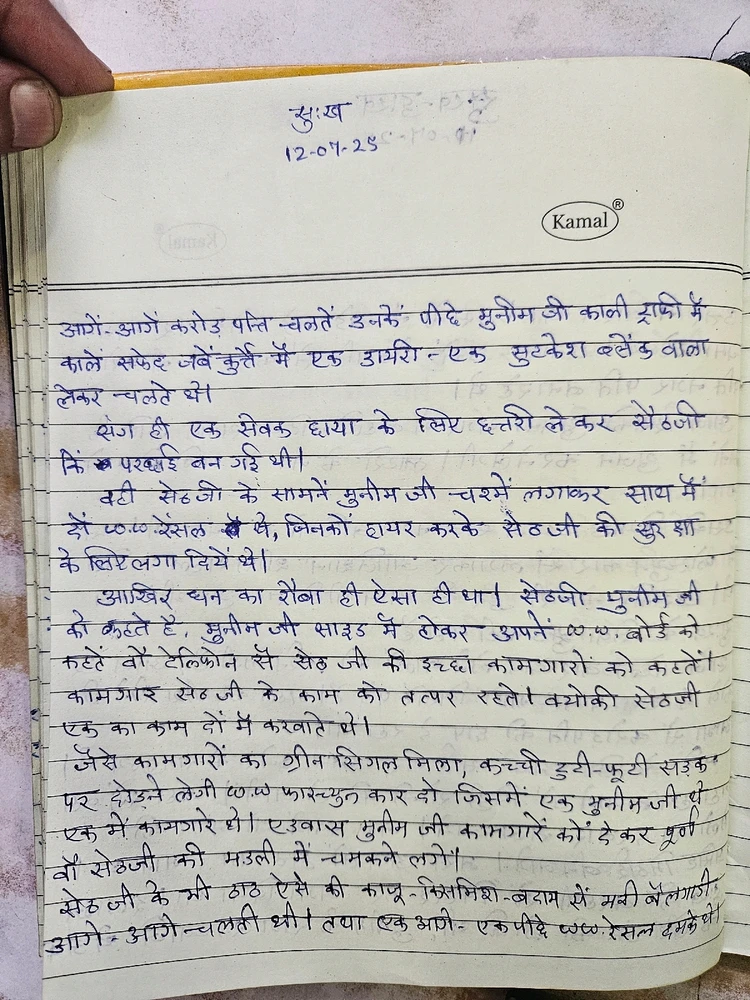 सुःख
12-07-25
Kamal®
आगें-आगें करोड़ पत्ति चलतें उनकें पीछे मुनीम जी काली ट्राफी मैं
कालें सफेद जबें कुर्ते मैं एक डायरी-एक सुटकेश ब्लैक वाला
लेकर चलते थे।
संग ही एक सेवक छाया के लिए छत्तरी लेकर सेठजी
कि परछाई बन गई थी।
वही सेठजी के सामनें मुनीम जी चश्में लगाकर साथ मैं
दों w.w. रेंसल थे, जिनकों हायर करके सेठजी की सुरक्षा
के लिए लगा दियें थे।
आखिर धन का रौबा ही ऐसा ही था। सेठजी मुनीम जी
को कहते है, मुनीम जी साइड मैं होकर अपनें w.w. बोर्ड को
कहतें वौं टेलिफोन सें सेठ जी की इच्छा कामगारों को कहतें।
कामगार सेठ जी के काम को तत्पर रहते। क्योकी सेठजी
एक का काम दों में करवाते थे।
जैसे कामगारों का ग्रीन सिगल मिला, कच्ची टुटी-फूटी सड़क
पर दोड़ने लेगी w.w फारच्युन कार दो जिसमें एक मुनीम जी थे
एक में कामगारे थे। एडवास मुनीम जी कामगारें कों देकर पूर्ण
वौं सेठजी की मडली में चमकने लगे।
सेठ जी के भी ठाठ ऐसे की काजू-किसमिश-बदाम सें भरी बैलगाड़ी
आगे-आगे चलती थी। तथा एक आगे-एक पीछे w.w. रेसल दमके थे।